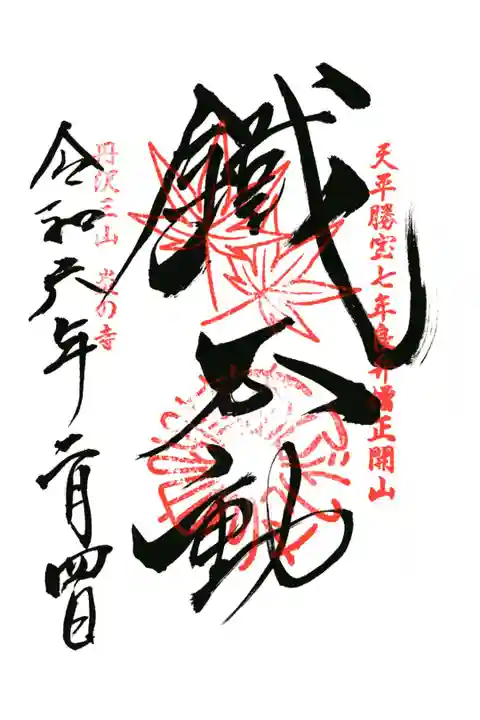 天平勝宝七年良弁僧正開山
鐵不動
丹沢三山 炎の寺
令和六年二月四日